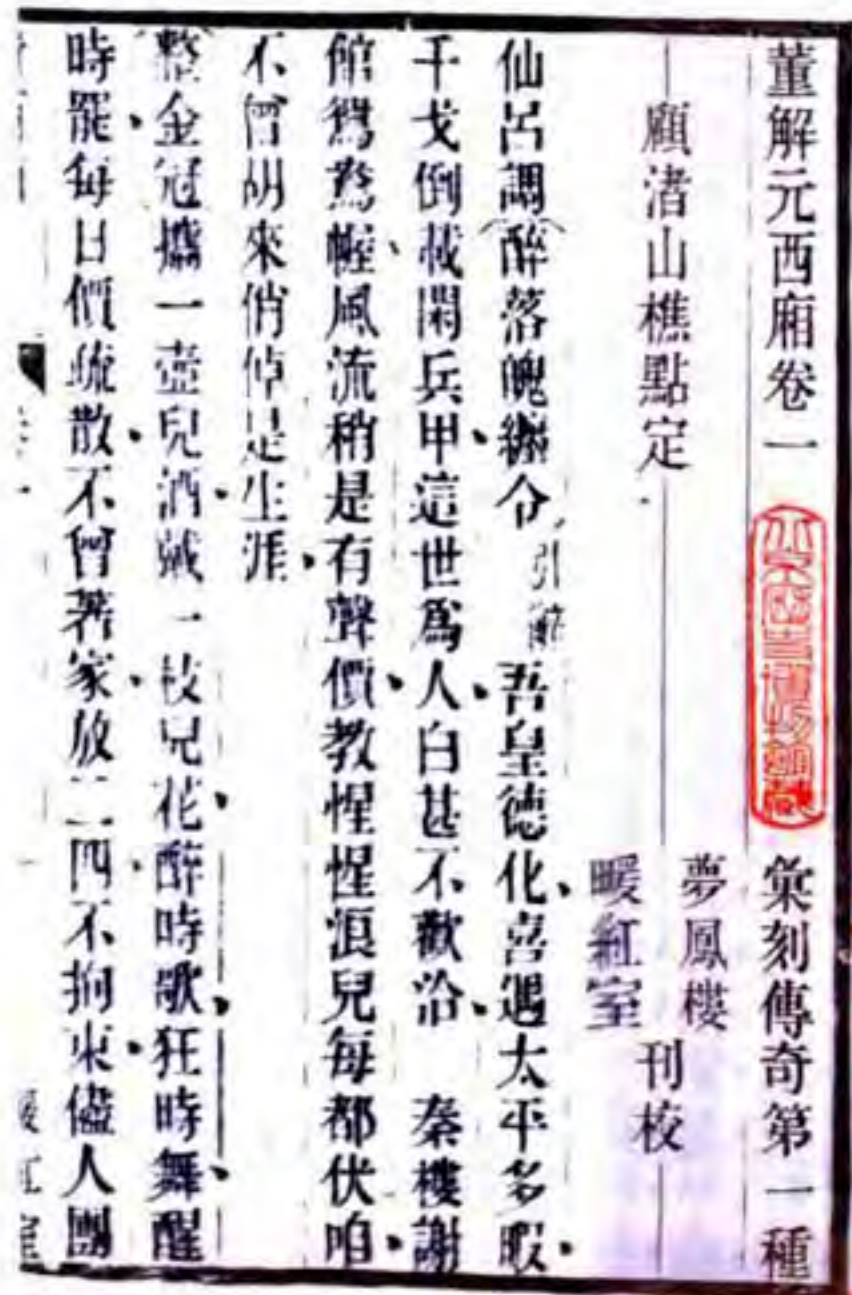 董解元西廂卷一　彙刻傳奇第一種
顧渚山樵點定　夢鳳樓
暖紅室　刊校
仙呂調醉落魄纏令　引辭　吾皇德化喜遇太平多暇
干戈倒載閑兵甲這世為人白甚不歡洽　秦樓謝
館鴛鴦幄風流稍是有聲價教惺惺浪兒每都伏咱
不曾胡來俏倬是生涯
整金冠攜一壺兒酒戴一枝兒花醉時歌狂時舞醒
時罷每日價疏散不曾著家放二四不拘束儘人團